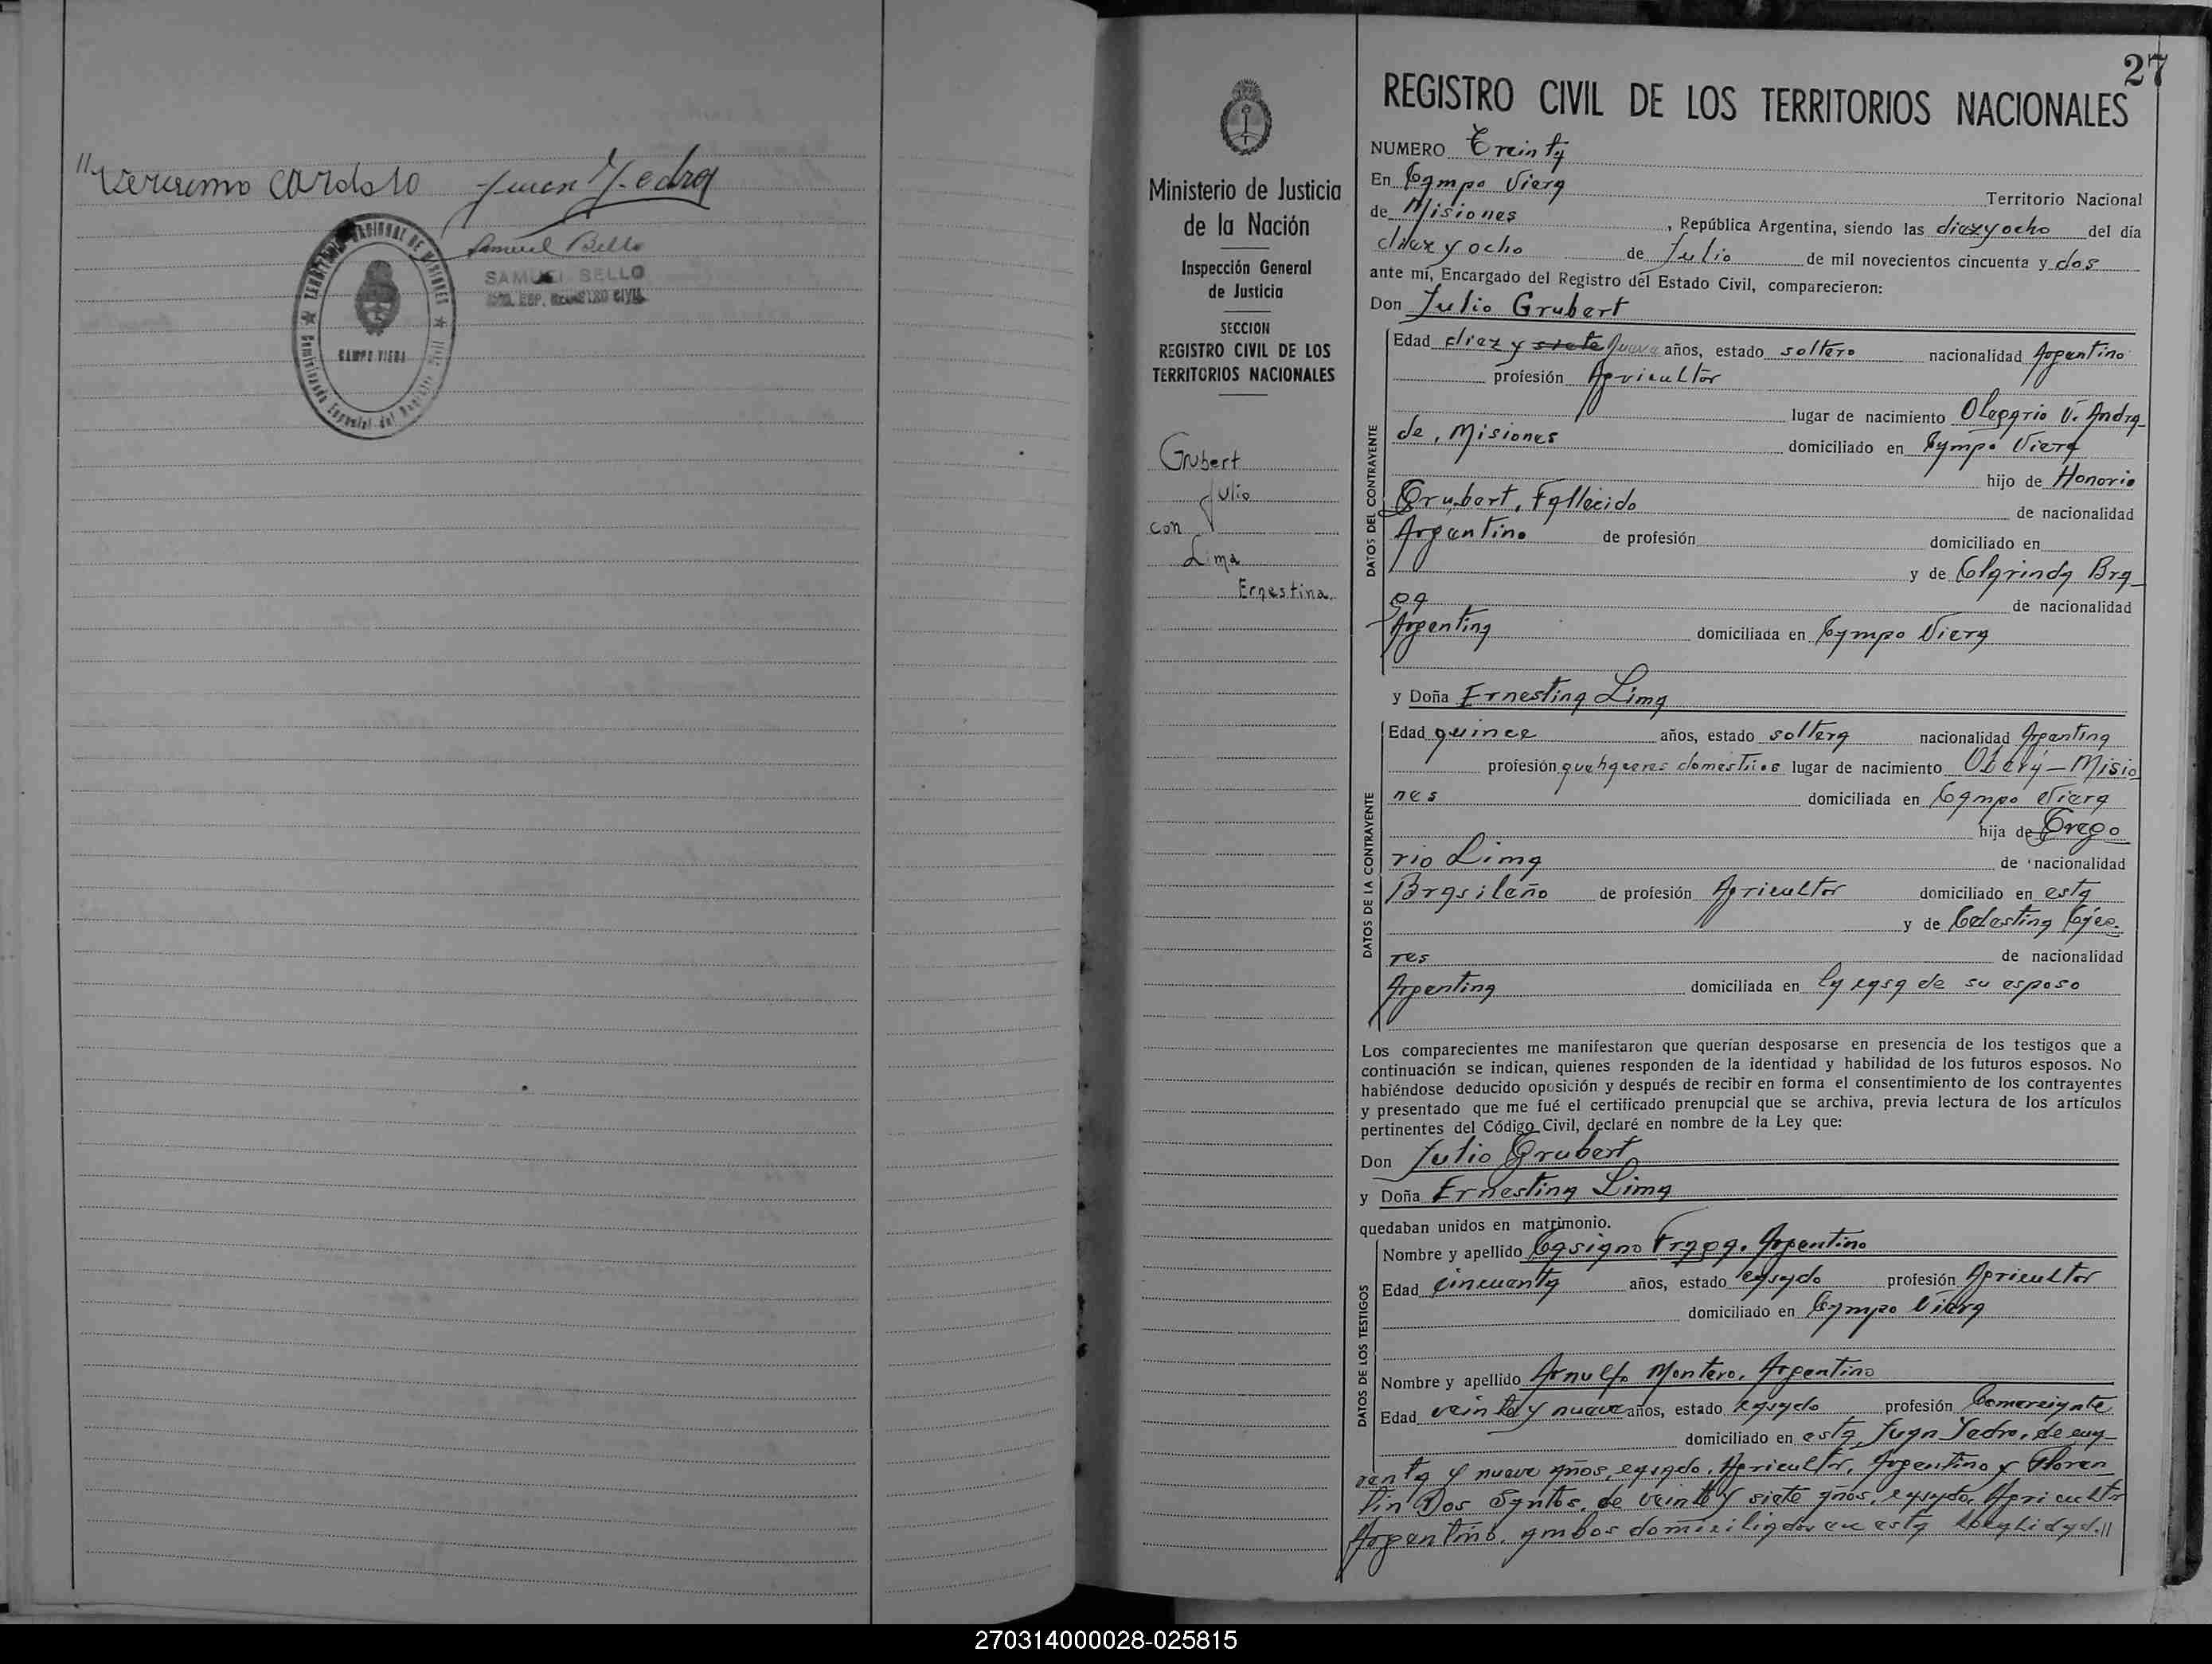 " Verisimo Cardoso Juan Yedro
Samuel Bello
SAMUEL BELLO
ESP. REGISTRO CIVIL
TERRITORIO NACIONAL DE MISIONES
CAMPO VIERA
Comisionado Especial del Registro Civil
27
Ministerio de Justicia
de la Nación
Inspección General
de Justicia
SECCION
REGISTRO CIVIL DE LOS
TERRITORIOS NACIONALES
Grubert
Julio
con
Lima
Ernestina.
REGISTRO CIVIL DE LOS TERRITORIOS NACIONALES
NUMERO Treinta
En Campo Viera Territorio Nacional
de Misiones, República Argentina, siendo las diez y ocho del día
diez y ocho de Julio de mil novecientos cincuenta y dos
ante mí, Encargado del Registro del Estado Civil, comparecieron:
Don Julio Grubert
DATOS DEL CONTRAYENTE
Edad diez y siete nueve años, estado soltero nacionalidad Argentino
profesión Agricultor
lugar de nacimiento Olegario V. Andra-
de, Misiones domiciliado en Campo Viera
hijo de Honorio
Grubert, Fallecido de nacionalidad
Argentino de profesión domiciliado en
y de Clarinda Bra-
ga de nacionalidad
Argentina domiciliada en Campo Viera
y Doña Ernestina Lima
DATOS DE LA CONTRAYENTE
Edad quince años, estado soltera nacionalidad Argentina
profesión quehaceres domésticos lugar de nacimiento Oberá - Misio
nes domiciliada en Campo Viera
hija de Grego
rio Lima de nacionalidad
Brasileño de profesión Agricultor domiciliado en esta
y de Celestina
res de nacionalidad
Argentina domiciliada en la casa de su esposo
Los comparecientes me manifestaron que querían desposarse en presencia de los testigos que a
continuación se indican, quienes responden de la identidad y habilidad de los futuros esposos. No
habiéndose deducido oposición y después de recibir en forma el consentimiento de los contrayentes
y presentado que me fué el certificado prenupcial que se archiva, previa lectura de los artículos
pertinentes del Código Civil, declaré en nombre de la Ley que:
Don Julio Grubert
y Doña Ernestina Lima
quedaban unidos en matrimonio.
DATOS DE LOS TESTIGOS
Nombre y apellido Casiano Fraga. Argentino
Edad cincuenta años, estado casado profesión Agricultor
domiciliado en Campo Viera
Nombre y apellido Arnulfo Montero. Argentino
Edad veinte y nueve años, estado casado profesión Comerciante
domiciliado en esta, Juan Yedro, de cua
renta y nueve años, casado, Agricultor, Argentino y Floren
tin Dos Santos, de veinte y siete años, casado, Agricultor
Argentino, ambos domiciliados en esta localidad.//
270314000028-025815